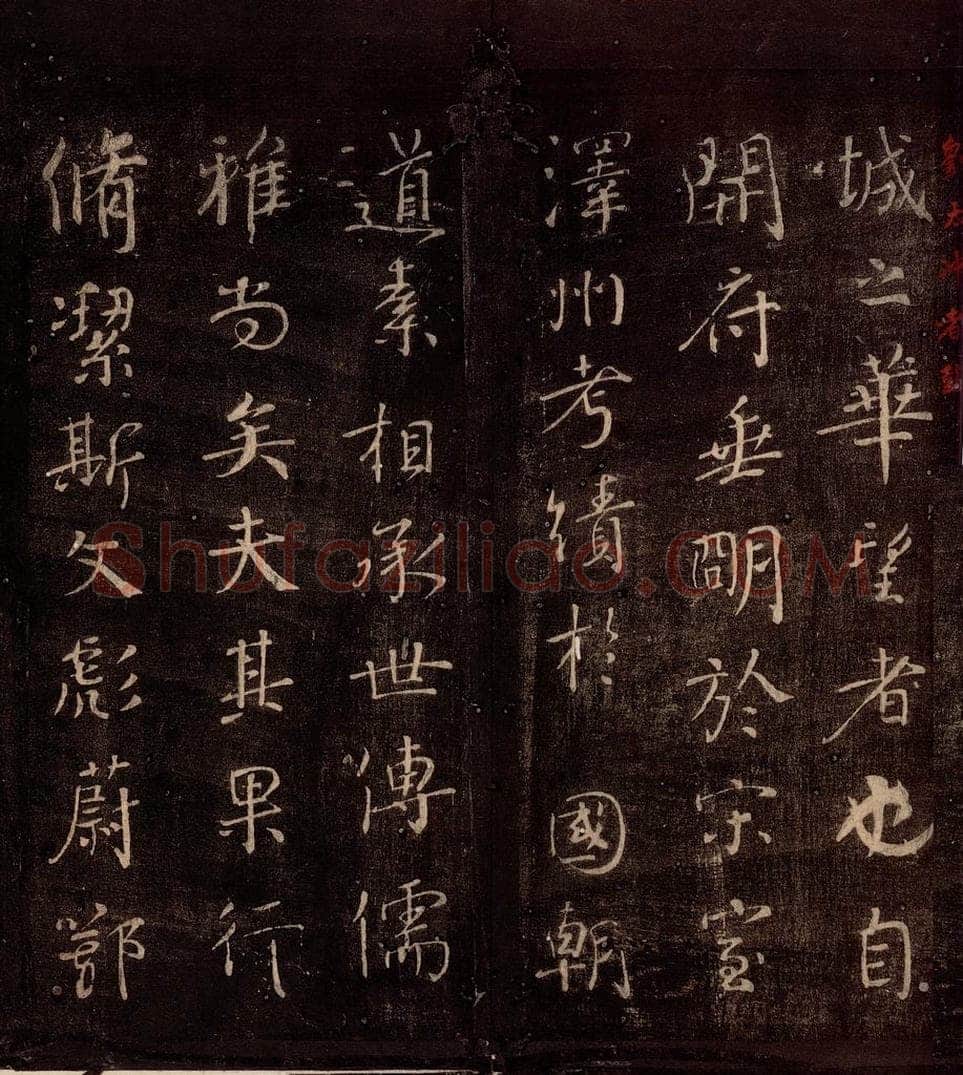 城之華望者也自
開府垂明於宋室
澤州考績於國朝
道素相承世傳儒
雅尚矣夫其果行
脩潔斯文彪蔚鄂
Shufaziliao.COM